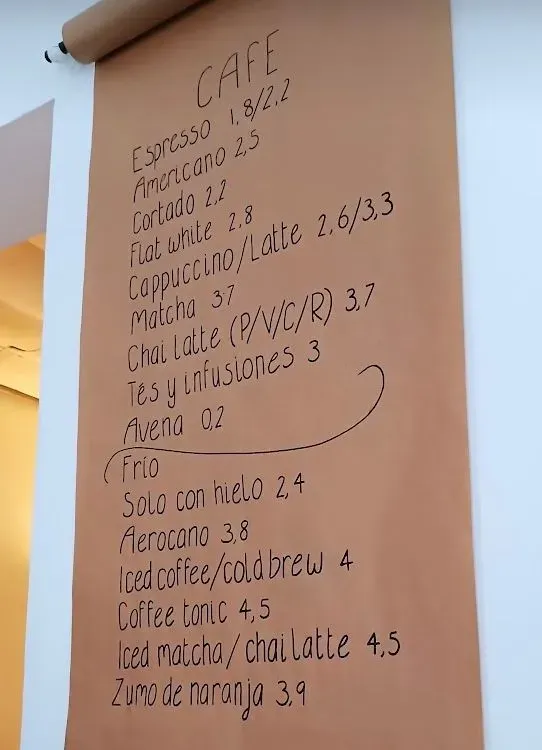 CAFE
Espresso 1,8/2,2
Americano 2,5
Cortado 2,2
Flat white 2,8
Cappuccino/Latte 2,6/3,3
Matcha 3.7
Chai latte (P/V/C/R) 3,7
Tés y infusiones 3
Avena 0,2
Frio
Solo con hielo 2,4
Aerocano 3,8
Iced coffee/cold brew 4
Coffee tonic 4,5
Iced matcha/chai latte 4,5
Zumo de naranja 3,9